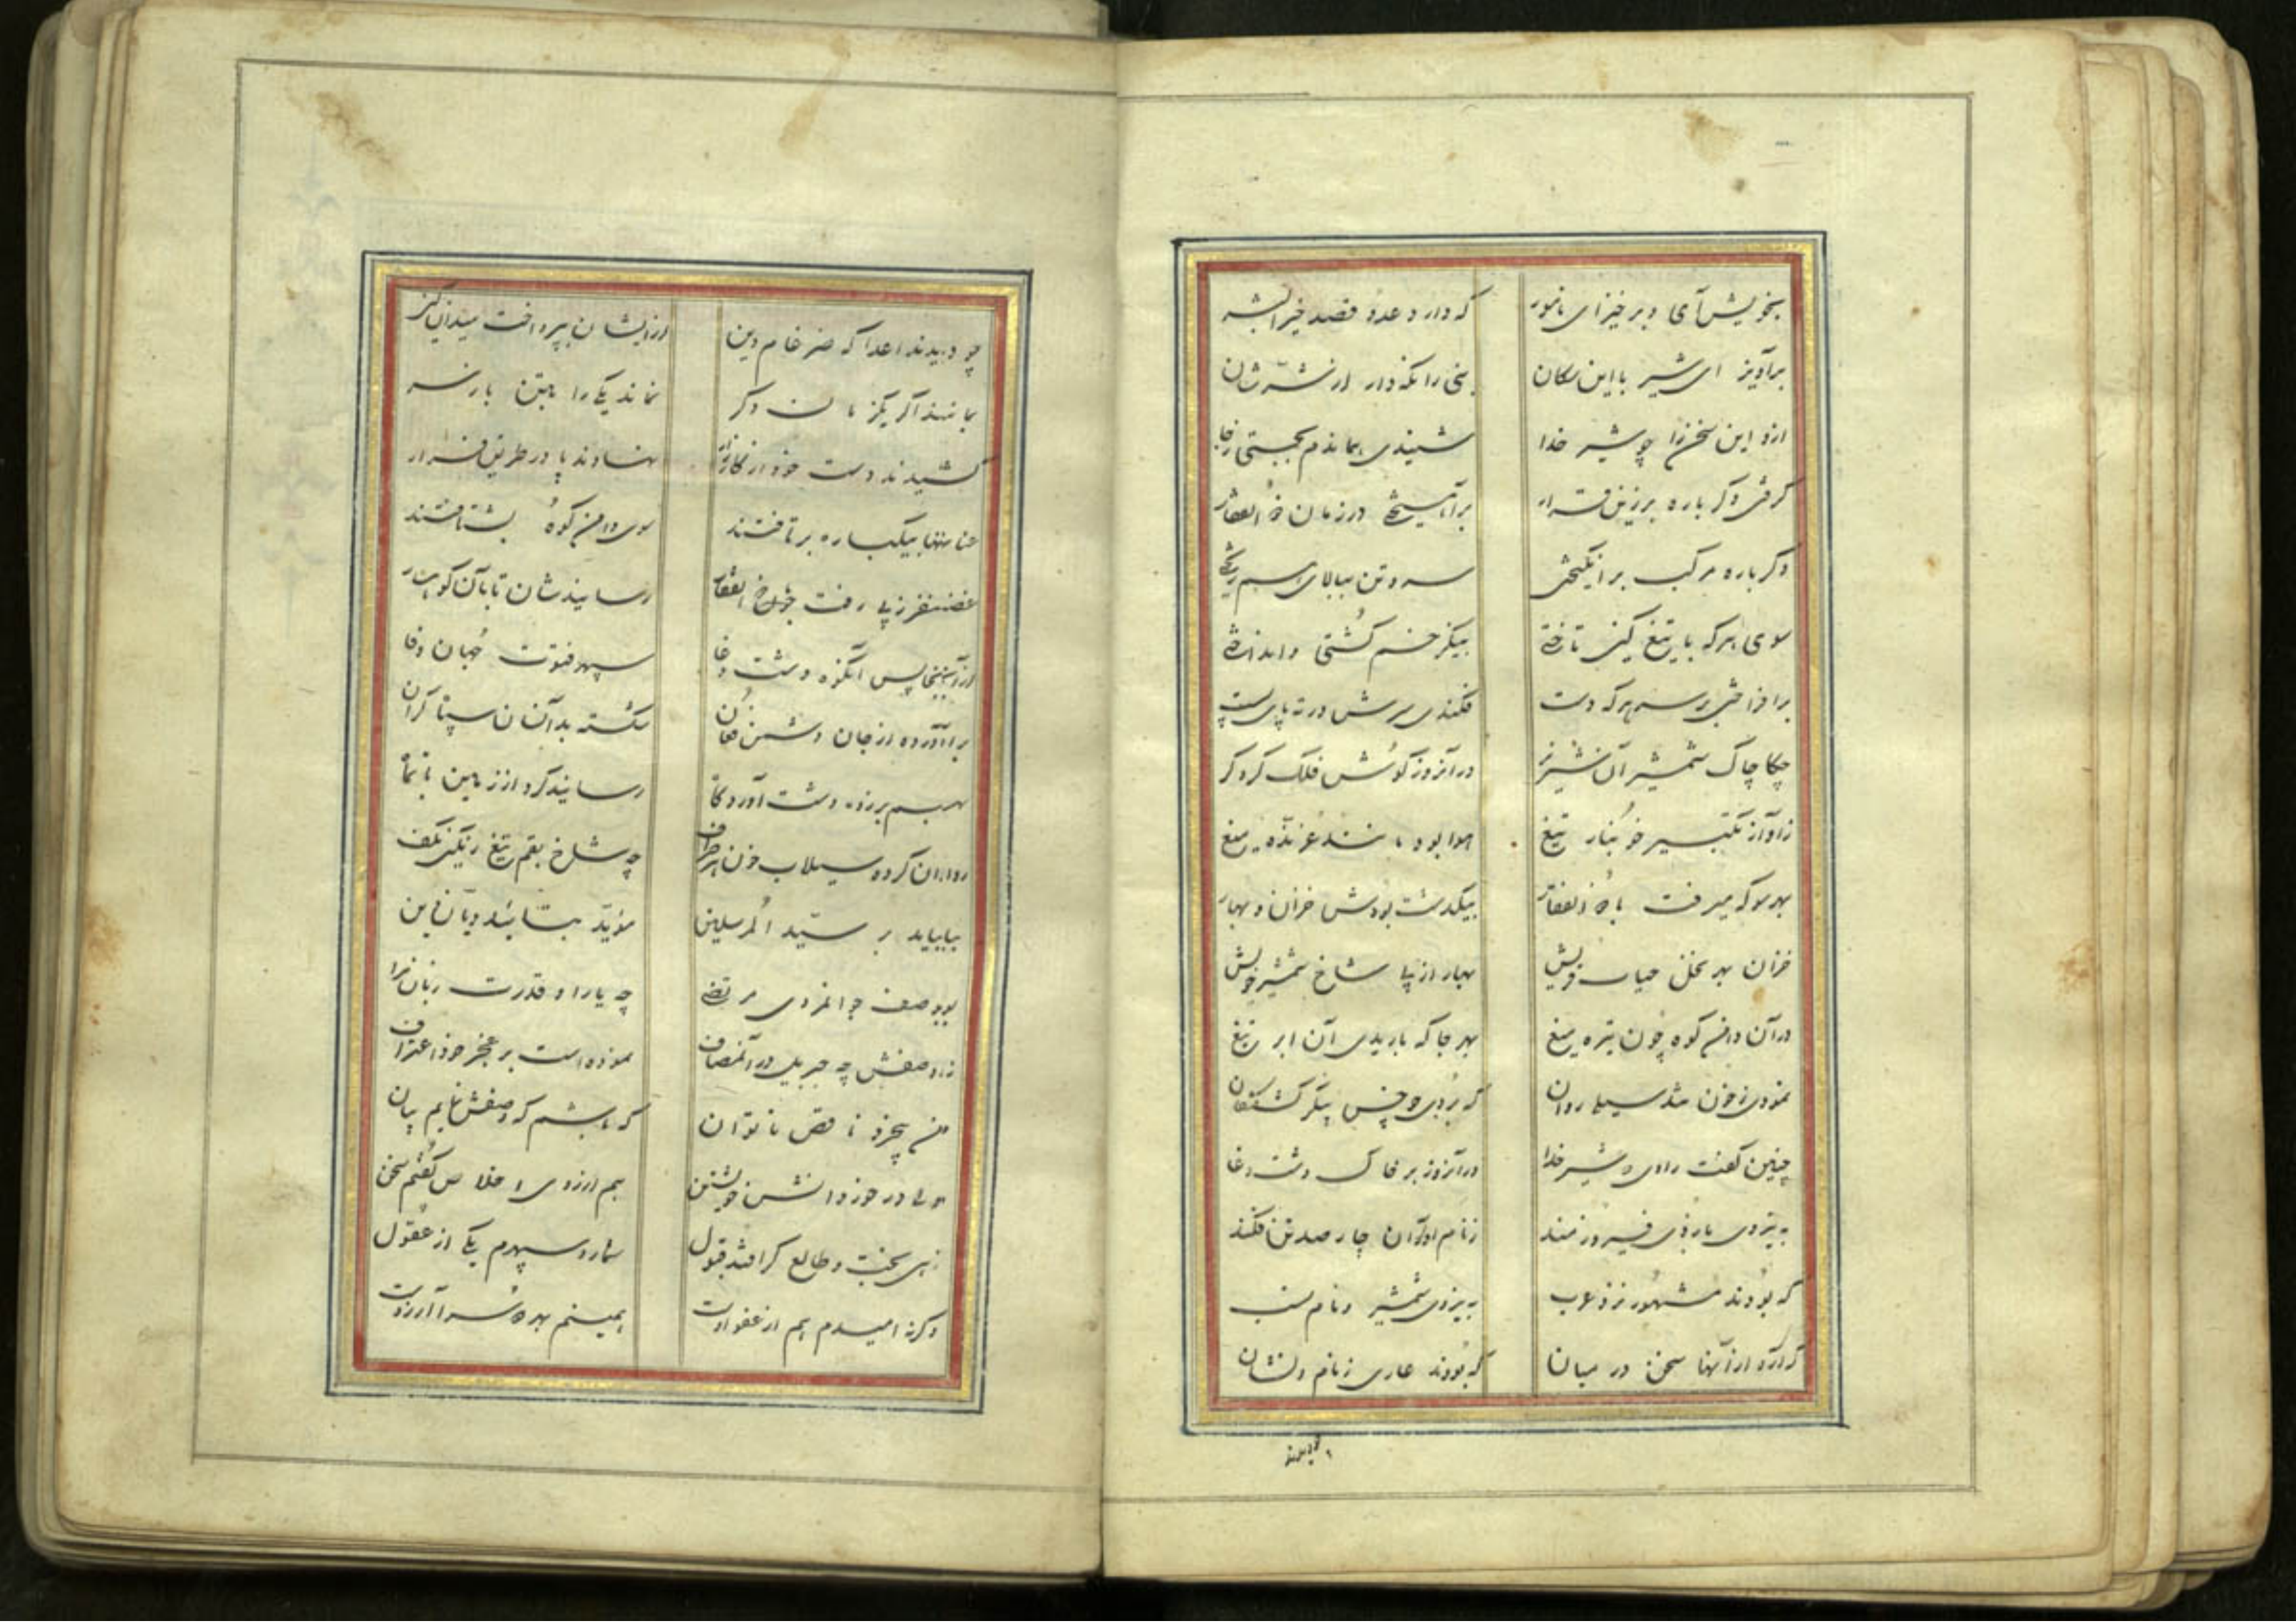 بخویش آی و برخیز ای نامور که دارد عدو قصد خیرالبشر
برآویز ای شیر با این سکان نبی را نگه دار از شرشان
ازو این سخن را چو شیر خدا شنیدی همان دم بجستی ز جا
گرفتی دگرباره بر زین قرار برآهیختی در زمان ذوالفقار
دگرباره مرکب برانگیختی سر و تن ببالای هم ریختی
سوی هر که با تیغ کین تاختی بیکزخم کشتی و انداختی
برافراختی بر سر هر که دست فکندی سرش در ته پای پست
چکاچاک شمشیر آن شیر نر در آنروز گوش فلک کرد کر
ز آواز تکبیر خونبار تیغ هوا بود مانند غرنده میغ
بهر سو که میرفت با ذوالفقار بیکدست بودش خزان و بهار
خزان بهر نخل حیات خویش بهار از پی شاخ شمشیر خویش
در آن دامن کوه چون تیره میغ بهر جا که باریدی آن ابر تیغ
نمودی ز خون شد سیلی روان که بردی چو خس پیکر کشتگان
چنین گفت راوی که شیر خدا در آنروز بر خاک دشت وغا
به نیروی بازوی فیروزمند ز نام‌آوران چار صد تن فکند
که بودند مشهور نزد عرب به نیروی شمشیر و نام نسب
گر آرد از آنها سخن در میان که بودند عاری ز نام و نشان
چو دیدند
چو دیدند اعدا که ضرغام دین از ایشان بپرداخت میدان کین
بمانند اگر یکزمان دگر نماند یکی را بتن بار سر
کشیدند دست خود از کارزار نهادند پا در طریق فرار
عنانها بیکباره برتافتند سوی دامن کوه بشتافتند
غضنفر ز پی رفت با ذوالفقار رسانیدشان تا بآن کوهسار
وز آنجا پس آنگه ز دشت وغا سپهر فتوت جهان وفا
برآورده از جان دشمن فغان شکسته بدآنسان سپاه گران
بهم بر زده دشت آوردگاه رسانیده گرد از زمین تا بماه
روان کرده سیلاب خون هر طرف چه شاخ بقم تیغ رنگین بکف
بیامد بر سید المرسلین مؤید بتایید جان آفرین
بود وصف جوانمردی مرتضی چه یارا و قدرت زبان مرا
ز اوصافش چه جبریل در آنمصاف نموده است بر عجز خود اعتراف
من بیخرد ناقص ناتوان که باشم که وصفش نمایم بیان
ولی در خور دانش خویشتن هم از روی اخلاص گفتم سخن
زهی بخت و طالع گر افتد قبول شمارد سپهرم یکی از عقول
وگرنه امیدم هم از عفو اوست همینم بهر دو سرا آرزوست